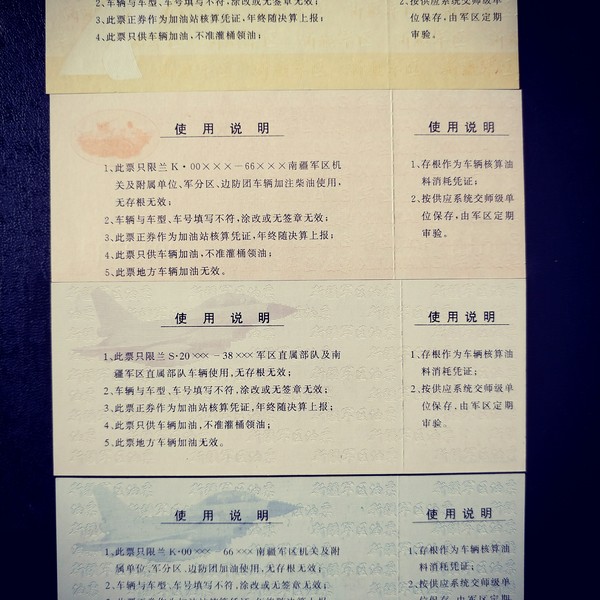 2、车辆与车型、车号填写不符，涂改或无签章无效；
3、此票正券作为加油站核算凭证，年终随决算上报；
4、此票只供车辆加油，不准灌桶领油；
2、按供应系统交师级单
位保存，由军区定期
审验。
使用说明
1、此票只限兰K·00×××－66×××南疆军区机
关及附属单位、军分区、边防团车辆加注柴油使用，
无存根无效；
2、车辆与车型、车号填写不符，涂改或无签章无效；
3、此票正券作为加油站核算凭证，年终随决算上报；
4、此票只供车辆加油，不准灌桶领油；
5、此票地方车辆加油无效。
使用说明
1、存根作为车辆核算油
料消耗凭证；
2、按供应系统交师级单
位保存，由军区定期
审验。
使用说明
1、此票只限兰S·20×××－38×××军区直属部队及南
疆军区直属部队车辆使用，无存根无效；
2、车辆与车型、车号填写不符，涂改或无签章无效；
3、此票正券作为加油站核算凭证，年终随决算上报；
4、此票只供车辆加油，不准灌桶领油；
5、此票地方车辆加油无效。
使用说明
1、存根作为车辆核算油
料消耗凭证；
2、按供应系统交师级单
位保存，由军区定期
审验。
使用说明
1、此票只限兰K·00×××－66×××南疆军区机关及附
属单位、军分区、边防团加油使用，无存根无效；
2、车辆与车型、车号填写不符，涂改或无签章无效；
使用说明
1、存根作为车辆核算油
料消耗凭证；
2、按供应系统交师级单